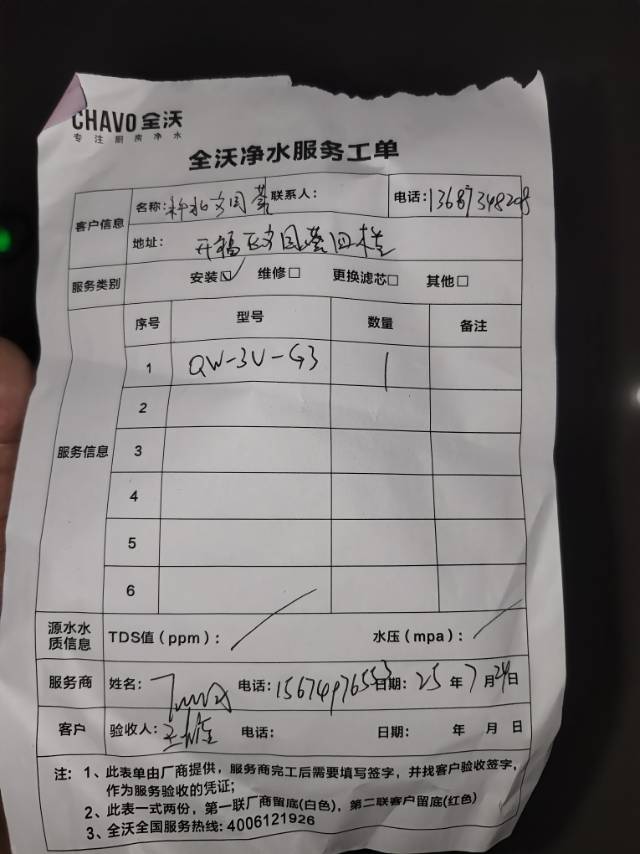 CHAVO 全沃
专注厨房净水
全沃净水服务工单
客户信息 名称： 联系人： 电话：
地址： 开福区
服务类别 安装☑ 维修□ 更换滤芯□ 其他□
服务信息 序号 型号 数量 备注
1 QW-3V-G3 1
2
3
4
5
6
源水水质信息 TDS值（ppm）： 水压（mpa）：
服务商 姓名： 电话：15674976553 日期：25年7月24日
客户 验收人： 电话： 日期： 年 月 日
注：1、此表单由厂商提供，服务商完工后需要填写签字，并找客户验收签字，
作为服务验收的凭证；
2、此表一式两份，第一联厂商留底(白色)，第二联客户留底(红色)
3、全沃全国服务热线：4006121926